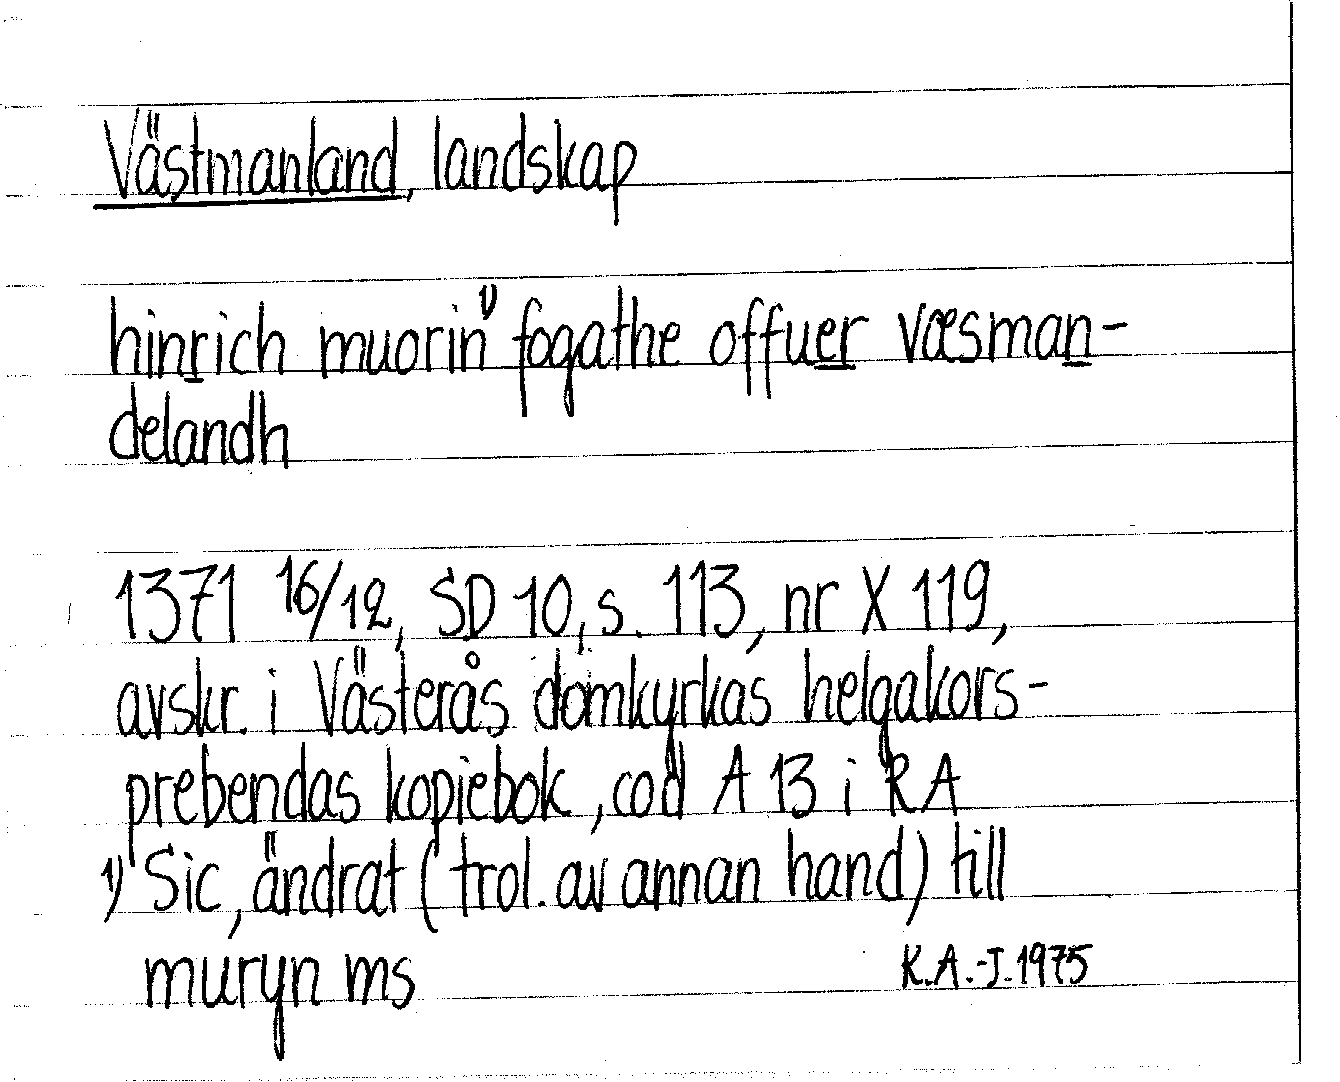 Västmanland, landskap
hinrich muorin¹⁾ fogathe offuer væsman-
delandh
1371 16/12, SD 10, s. 113, nr X 119,
avskr. i Västerås domkyrkas helgakors-
prebendas kopiebok, cod A 13 i RA
1) Sic, ändrat (trol. av annan hand) till
muryn ms
K.A.-J. 1975